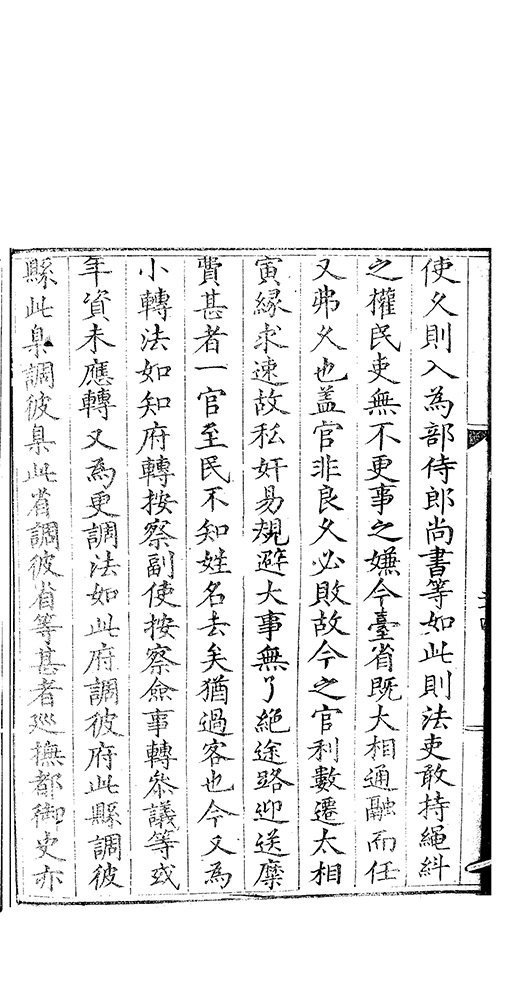 使久則入為部侍郎尚書等如此則法吏敢持繩糾
之權民吏無不更事之嫌今臺省既大相通融而任
又弗久也盖官非良久必敗故今之官利數遷太相
寅緣求速故私奸易規避大事無了絕途路迎送糜
費甚者一官至民不知姓名去矣猶過客也今又為
小轉法如知府轉按察副使按察僉事轉參議等或
年資未應轉又為更調法如此府調彼府此縣調彼
縣此臬調彼臬此省調彼省等甚者巡撫都御史亦